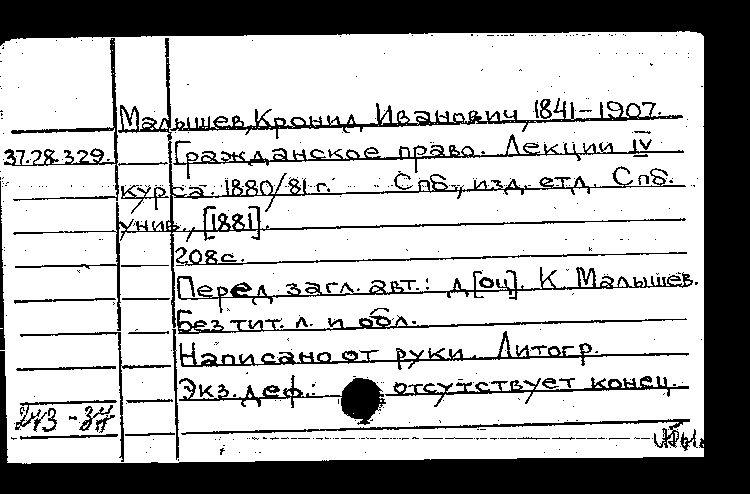 Малышев, Кронид Иванович, 1841-1907.
37.28.329. Гражданское право. Лекции IV
курса. 1880/81 г. Спб., изд. студ. Спб.
унив., [1881].
208 с.
Перед загл. авт.: д[оц]. К Малышев.
Без тит. л. и обл.
Написано от руки. Литогр.
Экз. деф.: отсутствует конец.
243-37